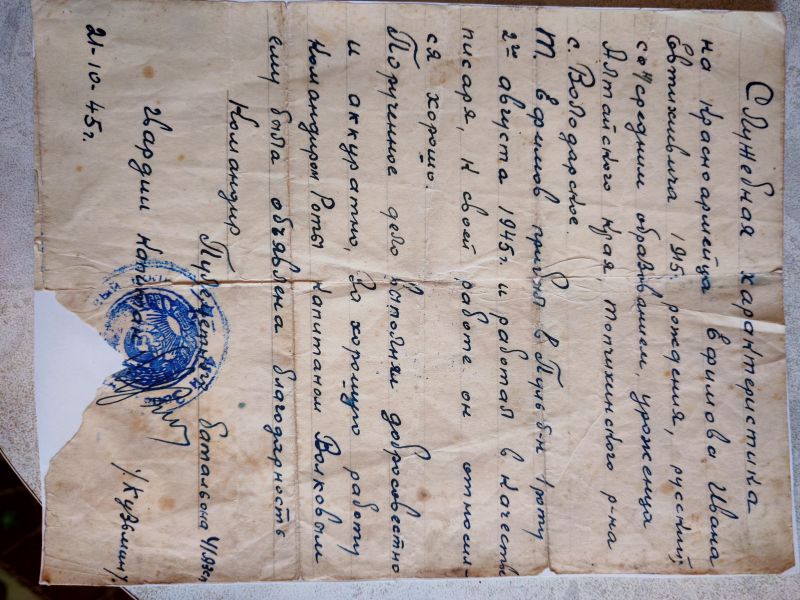 Служебная характеристика
на красноармейца Ефимова Ивана
Евтихивича 1915г. рождения, русский,
со средним образованием, уроженца
Алтайского края, топчихинского р-на
с. Володарское.
Т. Ефимов прибыл в Пуль б-н 1 роту
2го августа 1945г. и работал в качестве
писаря, к своей работе он относил-
ся хорошо.
Порученное дело выполнял добросовестно
и аккуратно, за хорошую работу
Командиром Роты капитаном Волковым
ему была объявлена благодарность
Командир
Пулемётный батальона
Гвардии капитан /Кузьмин/.
21-10-45г.